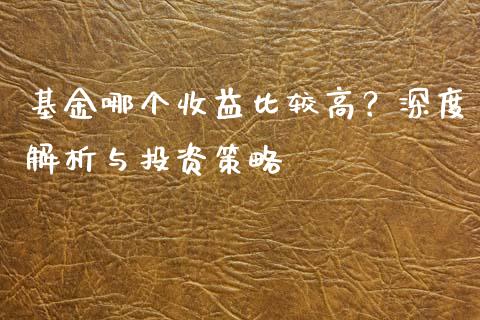 基金哪个收益比较高？深度
解析与投资策略